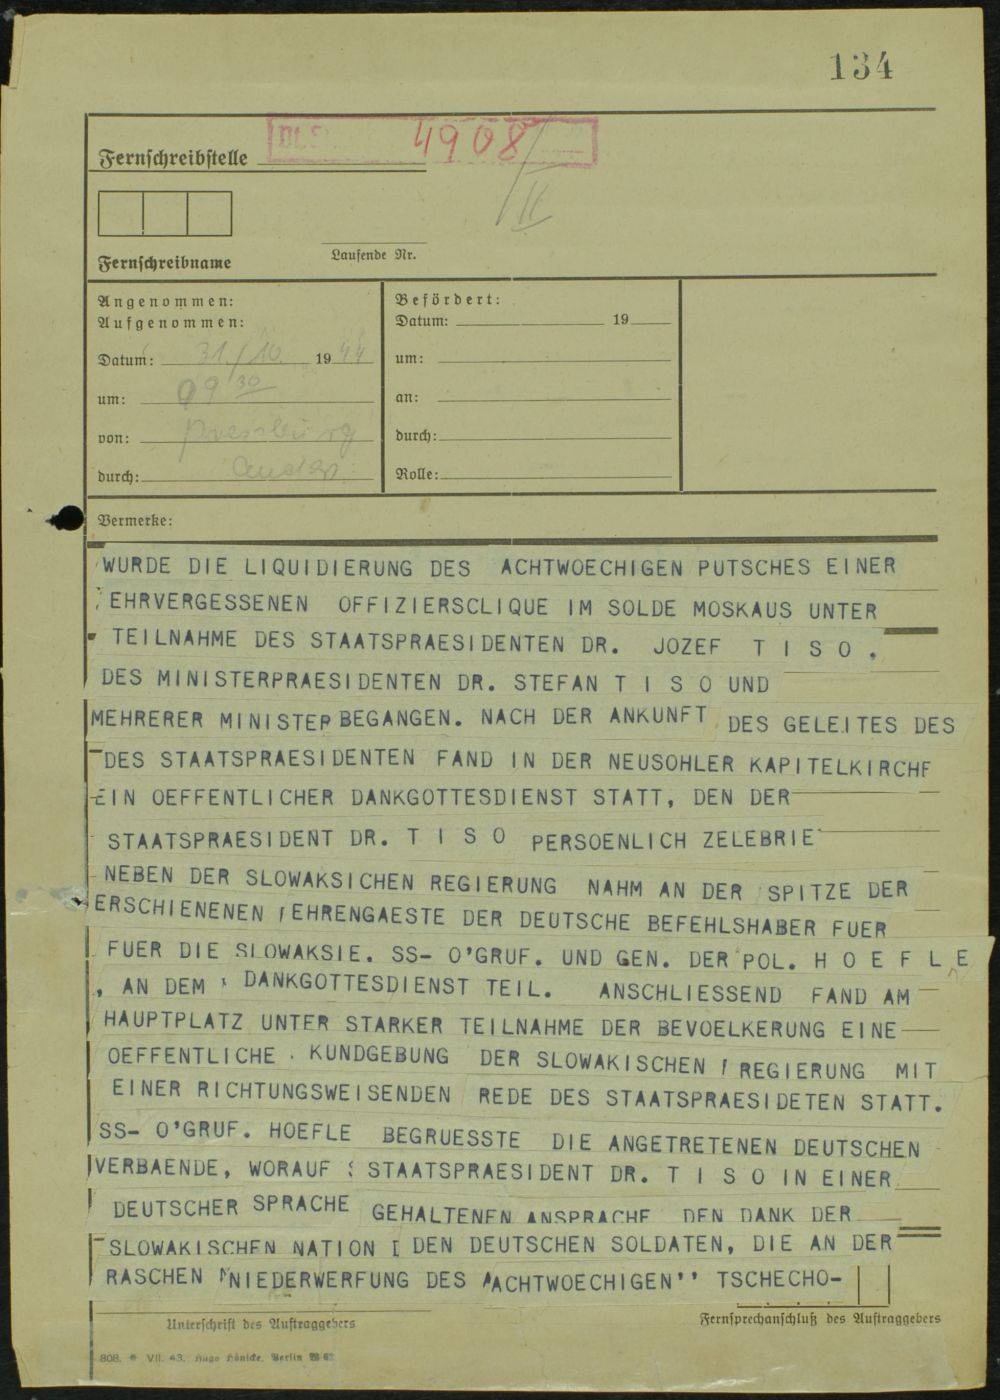 134
4908
II
Fernschreibstelle
Fernschreibname
Laufende Nr.
Angenommen:
Aufgenommen:
Datum: 31./10. 1944
um: 09 30
von: Pressburg
durch:
Befördert:
Datum: 19
um:
an:
durch:
Rolle:
Vermerke:
WURDE DIE LIQUIDIERUNG DES ACHTWOECHIGEN PUTSCHES EINER
EHRVERGESSENEN OFFIZIERSCLIQUE IM SOLDE MOSKAUS UNTER
TEILNAHME DES STAATSPRAESIDENTEN DR. JOZEF T I S O ,
DES MINISTERPRAESIDENTEN DR. STEFAN T I S O UND
MEHRERER MINISTER BEGANGEN. NACH DER ANKUNFT DES GELEITES DES
DES STAATSPRAESIDENTEN FAND IN DER NEUSOHLER KAPITELKIRCHE
EIN OEFFENTLICHER DANKGOTTESDIENST STATT, DEN DER
STAATSPRAESIDENT DR. T I S O PERSOENLICH ZELEBRIE
NEBEN DER SLOWAKSICHEN REGIERUNG NAHM AN DER SPITZE DER
ERSCHIENENEN EHRENGAESTE DER DEUTSCHE BEFEHLSHABER FUER
FUER DIE SLOWAKSIE. SS- O'GRUF. UND GEN. DER POL. H O E F L E
, AN DEM DANKGOTTESDIENST TEIL. ANSCHLIESSEND FAND AM
HAUPTPLATZ UNTER STARKER TEILNAHME DER BEVOELKERUNG EINE
OEFFENTLICHE KUNDGEBUNG DER SLOWAKISCHEN REGIERUNG MIT
EINER RICHTUNGSWEISENDEN REDE DES STAATSPRAESIDETEN STATT.
SS- O'GRUF. HOEFLE BEGRUESSTE DIE ANGETRETENEN DEUTSCHEN
VERBAENDE, WORAUF STAATSPRAESIDENT DR. T I S O IN EINER
DEUTSCHER SPRACHE GEHALTENEN ANSPRACHE DEN DANK DER
SLOWAKISCHEN NATION DEN DEUTSCHEN SOLDATEN, DIE AN DER
RASCHEN NIEDERWERFUNG DES ACHTWOECHIGEN'' TSCHECHO-
Unterschrift des Auftraggebers
Fernsprechanschluß des Auftraggebers
808. * VII. 43. Hugo Hönicke, Berlin